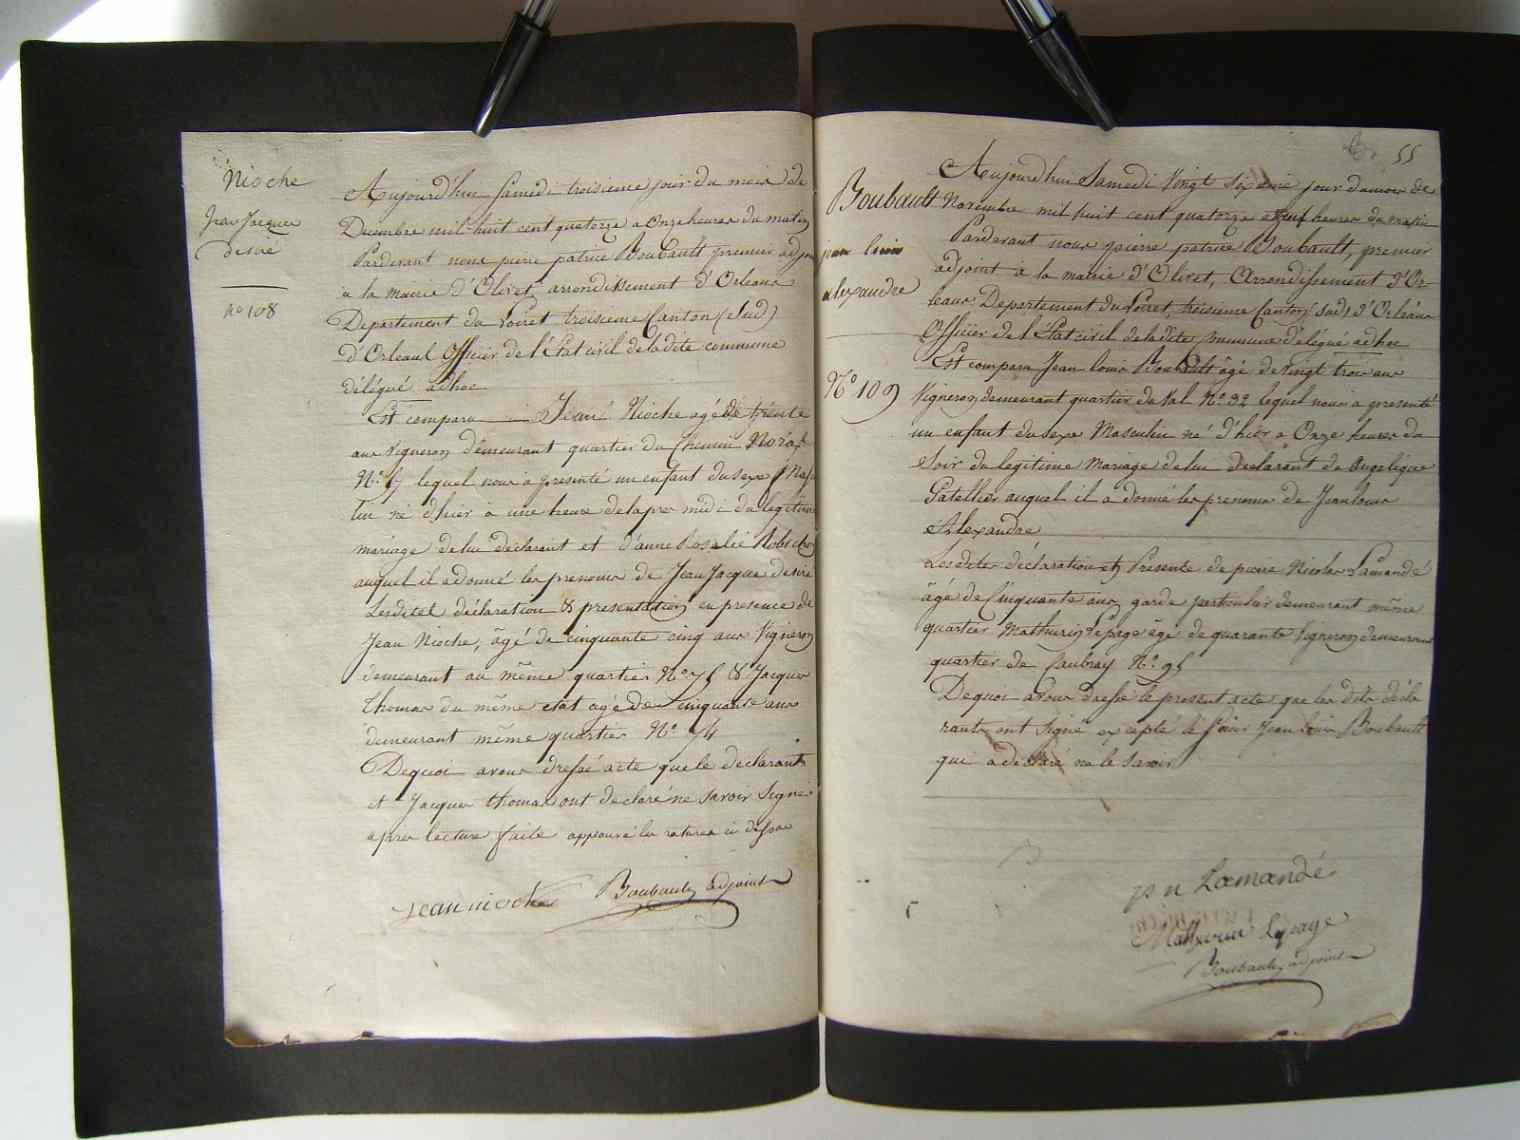 Nioche
Jean Jacques
desiré
no 108
Aujourd'hui Samedi troisieme jour du mois de
Decembre mil huit cent quatorze a Onze heures du matin
Pardevant nous pierre patrice Boubault premier adjoint
a la mairie d'Olivet arrondissement d'Orleans
Departement du Loiret troisieme Canton (Sud)
d'Orleans Officier de l'Etat civil de la dite commune
délégué adhoc
Est comparu Jean Nioche agé de trente
ans Vigneron demeurant quartier du Chemin
lequel nous a presenté un enfant du sexe Mascu
lin né d'hier a une heure de lapres midi du legitime
mariage de lui déclarant et d'anne Rosalie
auquel il a donné les prenoms de Jean Jacque desiré
Lesdites déclaration & presentation en presence de
Jean Nioche, âgé de cinquante cinq ans Vigneron
demeurant au même quartier & Jacques
thomas du même etat agé de Cinquante ans
demeurant même quartier
Dequoi avons dressé acte que le declarant
et Jacques thomas ont declaré ne savoir Signé
apres lecture faite approuvé les ratures ci dessus
jean nioche Boubault adjoint
55
Boubault
jean louis
alexandre
No 109
Aujourd'hui Samedi Vingt Sixieme jour du mois de
Novembre mil huit cent quatorze a neuf heures du matin
Pardevant nous pierre patrice Boubault, premier
adjoint à la mairie d'Olivet, Arrondissement d'Or-
leans Departement du Loiret, troisieme Canton (Sud) d'Orléans
Officier de l'Etat civil de la dite Commune délégué adhoc
Est comparu Jean louis Boubault âgé de vingt trois ans
Vigneron demeurant quartier du Val No 32 lequel nous a presenté
un enfant du sexe Masculin né d'hier a Onze heures du
Soir du legitime mariage de lui declarant de Angelique
auquel il a donné les prenoms de Jean louis
Alexandre
Lesdites déclaration et Présente de pierre Nicolas Lamandé
âgé de Cinquante ans garde particulier demeurant même
quartier Mathurin Lepage âgé de quarante Vigneron demeurant
quartier de Caubray
Dequoi avons dressé le present acte que les dits décla
rants ont signé excepté le Sieur Jean louis Boubault
qui a declaré ne le savoir
p n Lamandé
Mathurin lepage
Boubault adjoint